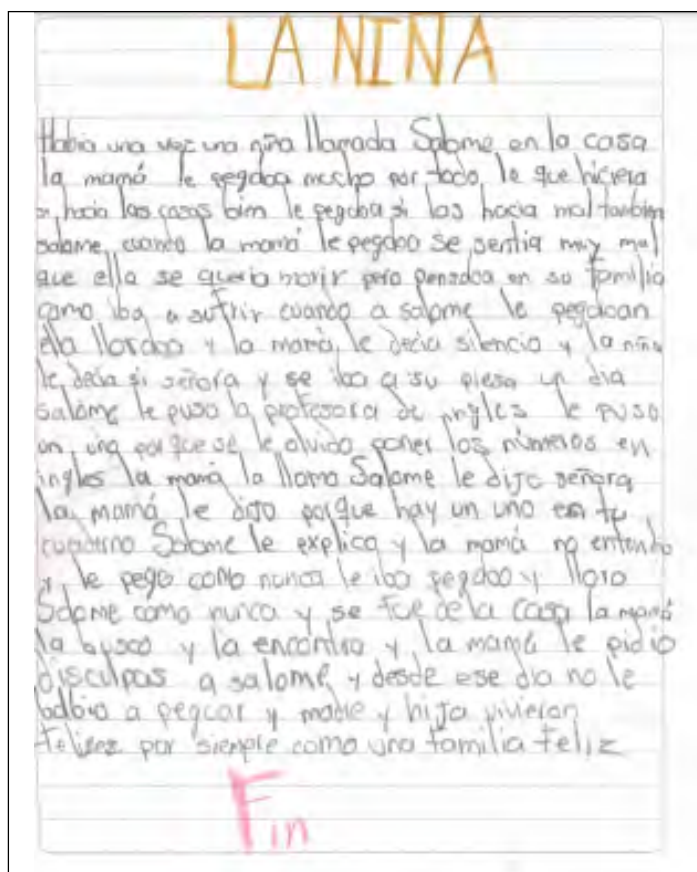 LA NIÑA
Habia una vez una niña llamada Salome en la casa
la mamá le pegaba mucho por todo le que hiciera
si hacia las cosas bim le pegaba si las hacia mal tambien
salome cuando la mamá le pegaba se sentia muy mal
que ella se queria morir pero pensaba en su familia
como iba a sufrir cuando a salome le pegaban
ella lloraba y la mamá le decia silencio y la niña
le decia si señora y se iba a su piesa un dia
salome le puso la profesora de ingles le puso
un uno porque se le olvido poner los números en
ingles la mamá la llamo Salome le dijo señora
la mamá le dijo porque hay un uno en tu
cuaderno Salome le explica y la mamá no entendio
y le pego como nunca le iba pegado y lloro
Salome como nunca y se fue de la casa la mamá
la busco y la encontro y la mamá le pidio
disculpas a salome y desde ese dia no le
bolbio a pegar y madre y hija vivieron
felises por siempre como una familia feliz
Fin